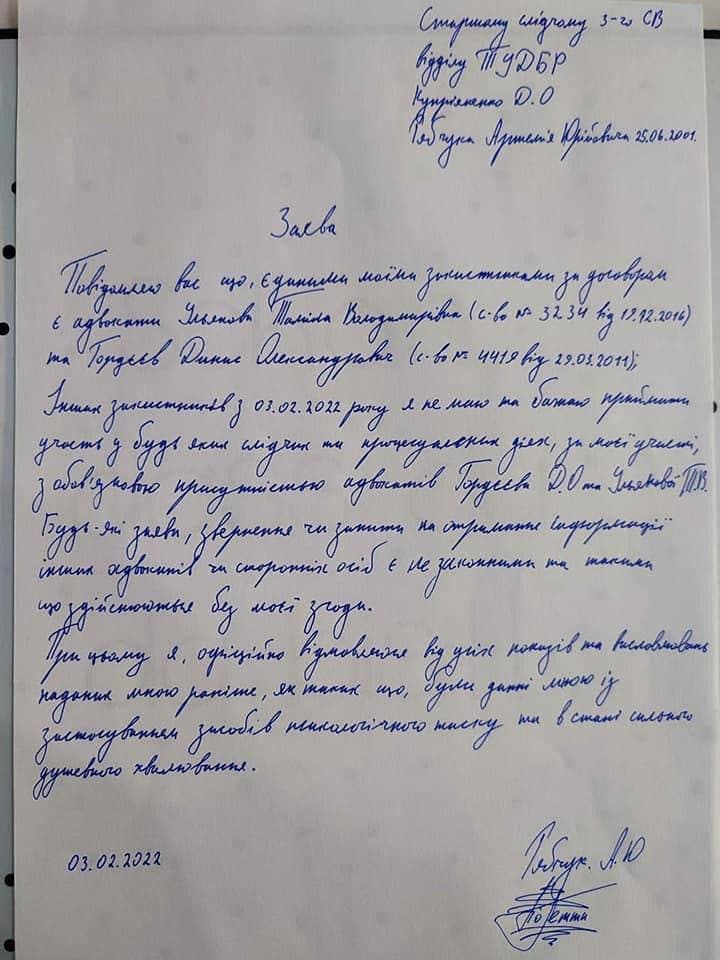 Старшому слідчому 3-го СВ
відділу ТУДБР
Купріяненко Д.О
Рябчука Артемія Юрійовича 25.06.2001.
Заява
Повідомляю вас що, єдиними моїми захистниками за договорам
є адвокати Ульякова Таліна Володимирівна (с-во № 3234 від 19.12.2016)
та Гордєєв Динис Олександрович (с-во № 4419 від 29.03.2011);
Інших захистників з 03.02.2022 року я не маю та бажаю приймати
участь у будь яких слідчих та процесуальних діях, за моєї участі,
з обов'язковою присутністью адвокатів Гордєєва Д.О та Ульякової Т.В.
Будь-які заяви, звернення чи запити на отримання інформації
інших адвокатів чи сторонніх осіб є не законними та такими
що здійснюються без моєї згоди.
При цьому я, офіційно відмовляюся від усіх показів та висловлювань
наданих мною раніше, як таких що, були данні мною із
застосуванням засобів психологічного тиску та в стані сильного
душевного хвилювання.
03.02.2022
Рябчук. А.Ю